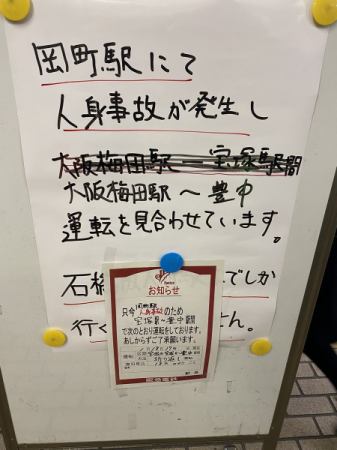 岡町駅にて
人身事故が発生し
大阪梅田駅ー宝塚駅間
大阪梅田駅〜豊中
運転を見合わせています。
石橋
でしか
行く
せん。
お知らせ
只今 岡町駅 人身事故のため
宝塚〜豊中間
で次のとおり運転をしております。
あしからずご了承願います。
折り返し
阪急電鉄